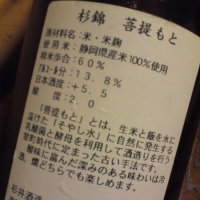 杉錦 菩提もと
原材料名：米・米麹
使用米：静岡県産米100％使用
精米歩合：60％
ｱﾙｺｰﾙ分：13.8％
日本酒度：＋5.5
酸度：2.0
「菩提もと」とは、生米と飯を水に
漬けた「そやし水」に自然に発生する
乳酸菌と酵母を利用して酒造りを行う
室町時代に定まった古い手法です。
酸味に富んだ深みのある味わいは冷
酒、燗どちらでも楽しめます。
杉井酒造